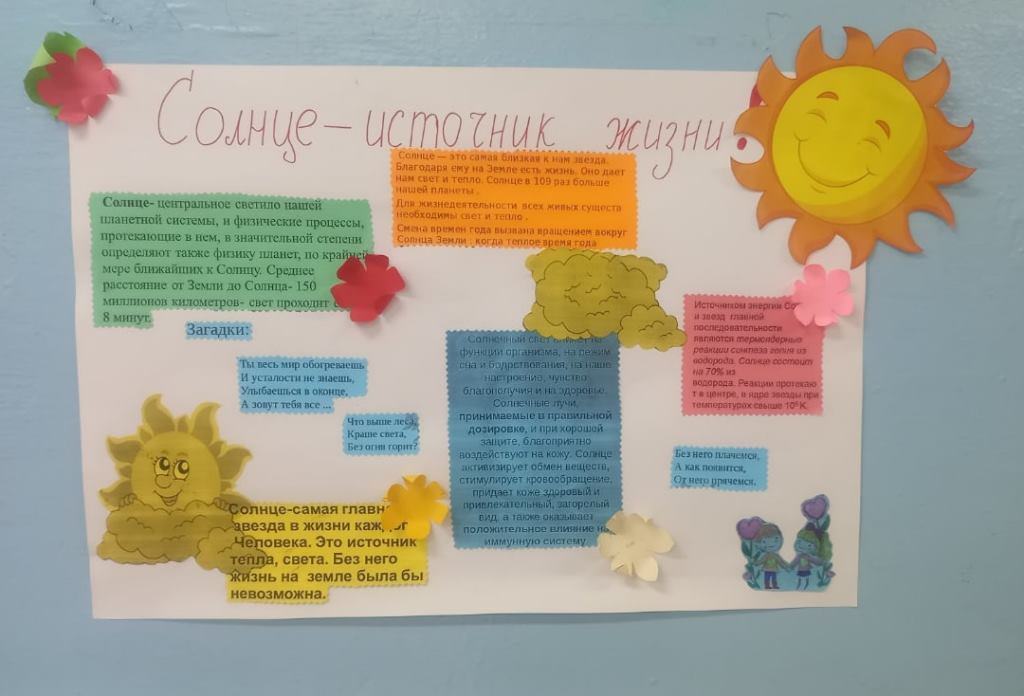 Солнце – источник жизни.
Солнце — это самая близкая к нам звезда.
Благодаря ему на Земле есть жизнь. Оно дает
нам свет и тепло. Солнце в 109 раз больше
нашей планеты .
Для жизнедеятельности всех живых существ
необходимы свет и тепло .
Смена времен года вызвана вращением вокруг
Солнца Земли : когда теплое время года
Солнце- центральное светило нашей
планетной системы, и физические процессы,
протекающие в нем, в значительной степени
определяют также физику планет, по крайней
мере ближайших к Солнцу. Среднее
расстояние от Земли до Солнца- 150
миллионов километров- свет проходит
8 минут.
Загадки:
Ты весь мир обогреваешь
И усталости не знаешь,
Улыбаешься в оконце,
А зовут тебя все ...
Что выше леса,
Краше света,
Без огня горит?
Солнце-самая главн
звезда в жизни каж
Человека. Это источник
тепла, света. Без него
жизнь на земле была бы
невозможна.
Солнечный свет влияет на
функции организма, на режим
сна и бодрствования, на наше
настроение, чувство
благополучия и на здоровье.
Солнечные лучи,
принимаемые в правильной
дозировке, и при хорошей
защите, благоприятно
воздействуют на кожу. Солнце
активизирует обмен веществ,
стимулирует кровообращение,
придает коже здоровый и
привлекательный, загорелый
вид, а также оказывает
положительное влияние на
иммунную систему.
Источником энергии
и звезд главной
последовательности
являются термоядерные
реакции синтеза гелия из
водорода. Солнце состоит
на 70% из
водорода. Реакции протекаю
т в центре, в ядре звезды при
температурах свыше 10⁶ K.
Без него плачемся,
А как появится,
От него прячемся.